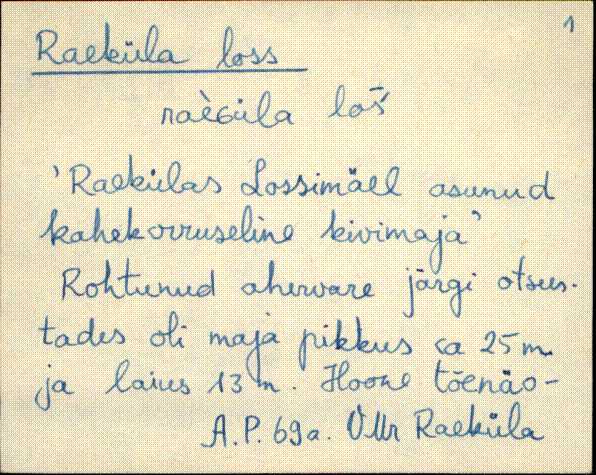 1
Raeküla loss
raèGüla loš̄
'Raekülas Lossimäel asunud
kahekorruseline kivimaja'
Rohtunud ahervare järgi otsus-
tades oli maja pikkus ca 25 m
ja laius 13 m. Hoone tõenäo-
A.P. 69a. VMr Raeküla